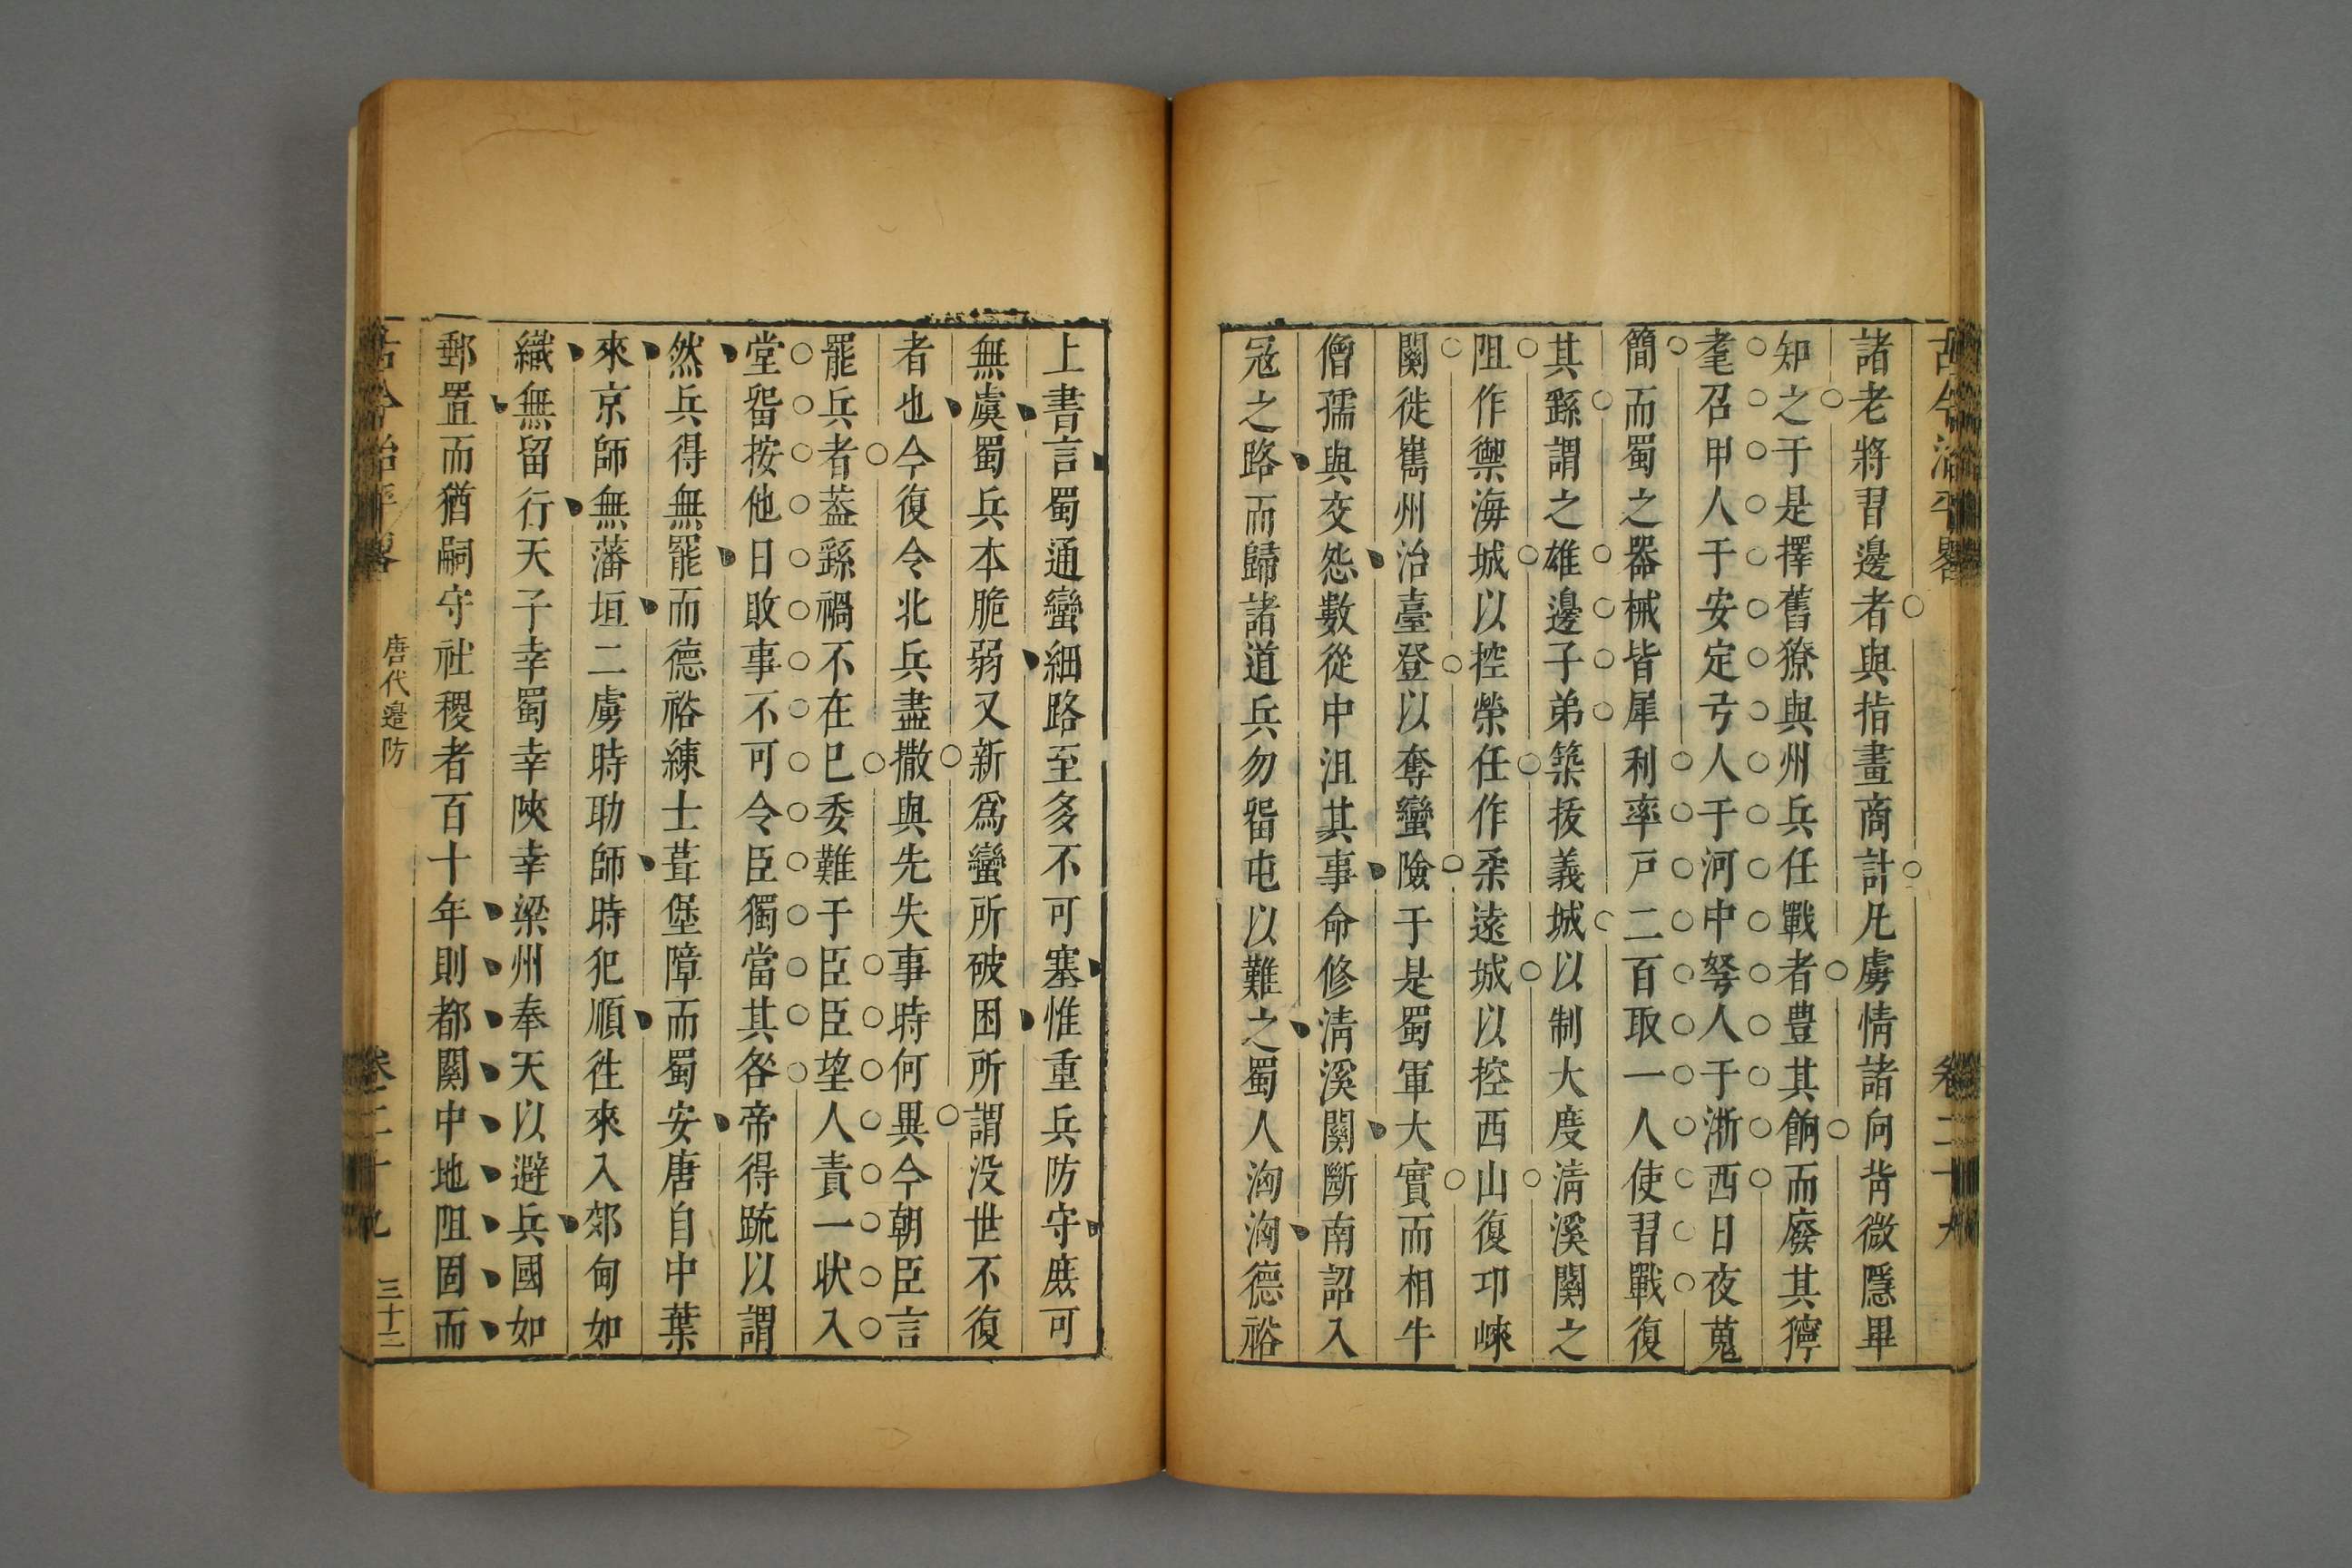 古今治平畧 卷二十九
諸老將習邊者與指畫商計凡虜情諸向背微隱畢
知之于是擇舊獠與州兵任戰者豊其餉而廢其獰
耄召甲人于安定弓人于河中弩人于淅西日夜蒐
簡而蜀之器械皆犀利率戸二百取一人使習戰復
其繇謂之雄邊子弟築抜義城以制大度淸溪關之
阻作禦海城以控榮任作柔遠城以控西山復邛崍
關徙雟州治臺登以奪蠻險于是蜀軍大實而相牛
僧孺與交怨數從中沮其事命修淸溪關斷南詔入
冦之路而歸諸道兵勿畱屯以難之蜀人洶洶德裕
上書言蜀通蠻細路至多不可塞惟重兵防守庻可
無虞蜀兵本脆弱又新爲蠻所破困所謂没世不復
者也今復令北兵盡撒與先失事時何異今朝臣言
罷兵者葢繇禍不在已委難于臣臣望人責一狀入
堂畱按他日敗事不可令臣獨當其咎帝得䟽以謂
然兵得無罷而德裕練士葺堡障而蜀安唐自中葉
來京師無藩垣二虜時助師時犯順徃來入郊甸如
織無留行天子幸蜀幸陜幸梁州奉天以避兵國如
郵置而猶嗣守社稷者百十年則都關中地阻固而
古今治平畧 唐代邉防 卷二十九 三十二